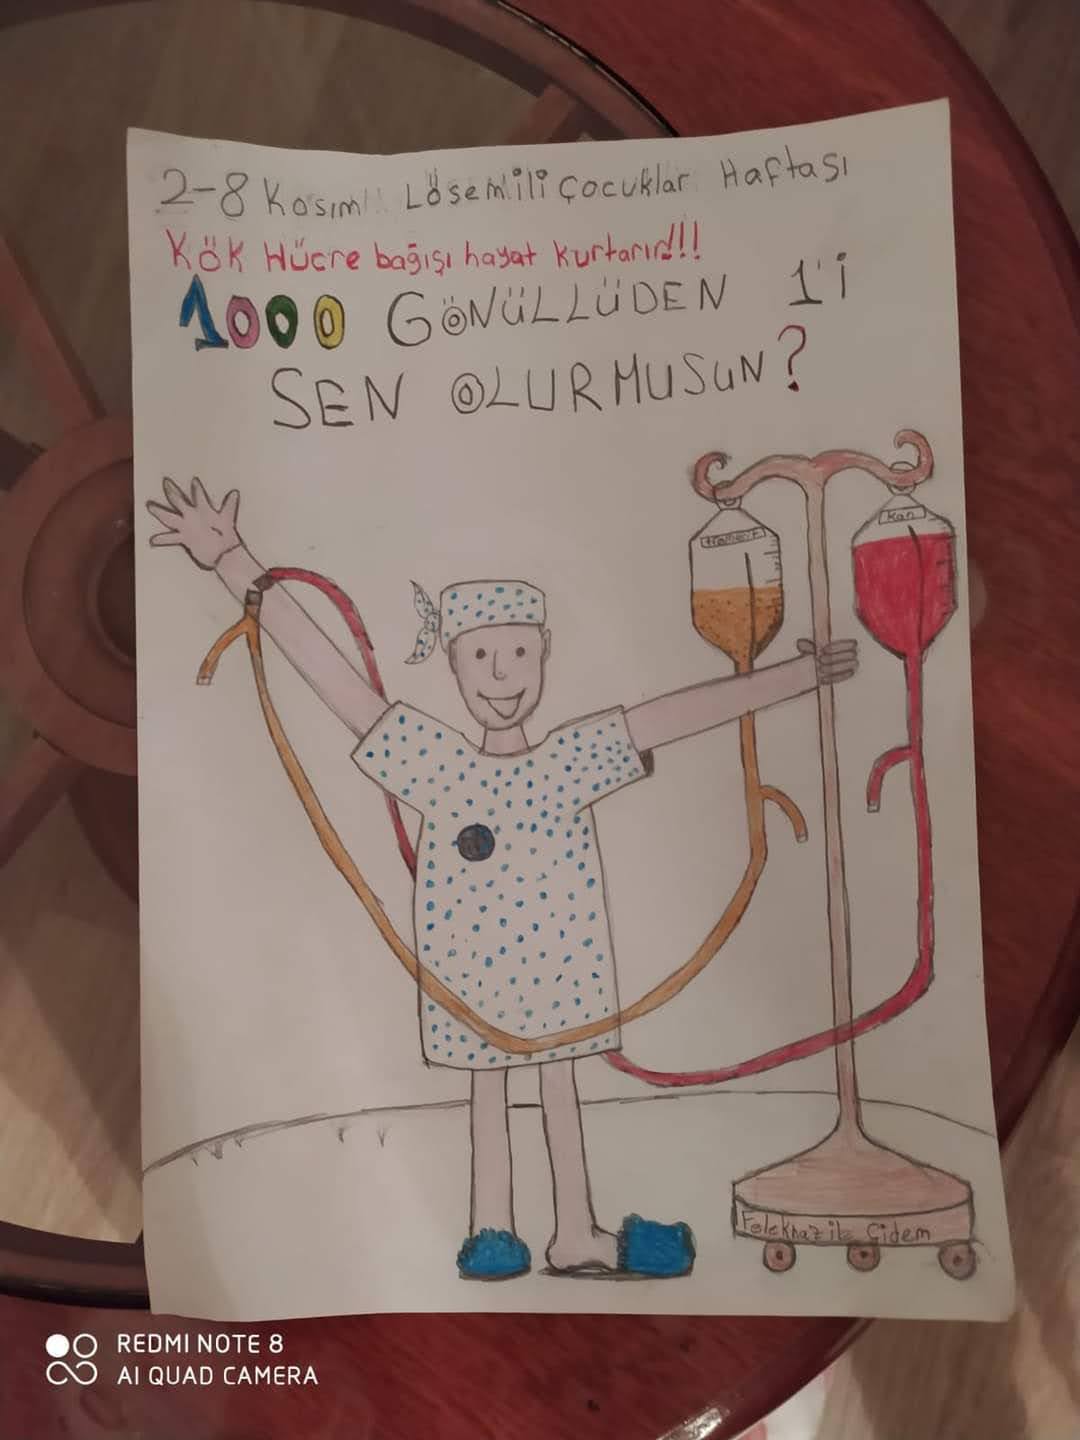 2-8 Kasım Lösemili Çocuklar Haftası
Kök Hücre bağışı hayat kurtarır!!!
1000 GÖNÜLLÜDEN 1'i
SEN OLURMUSUN?
Kan
Çidem
REDMI NOTE 8
AI QUAD CAMERA